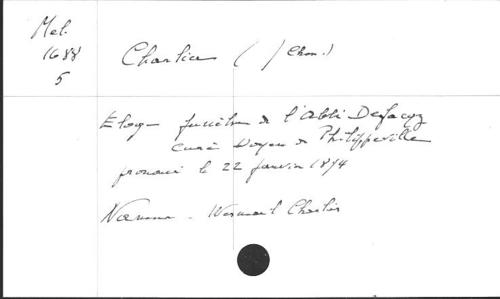 Mel.
1688
5
Charlier ( ) Chan.)
Eloge funèbre de l'Abbé Defacqz
curé Doyen de Philippeville
prononcé le 22 janvier 1874
Namur - Wesmael Charlier